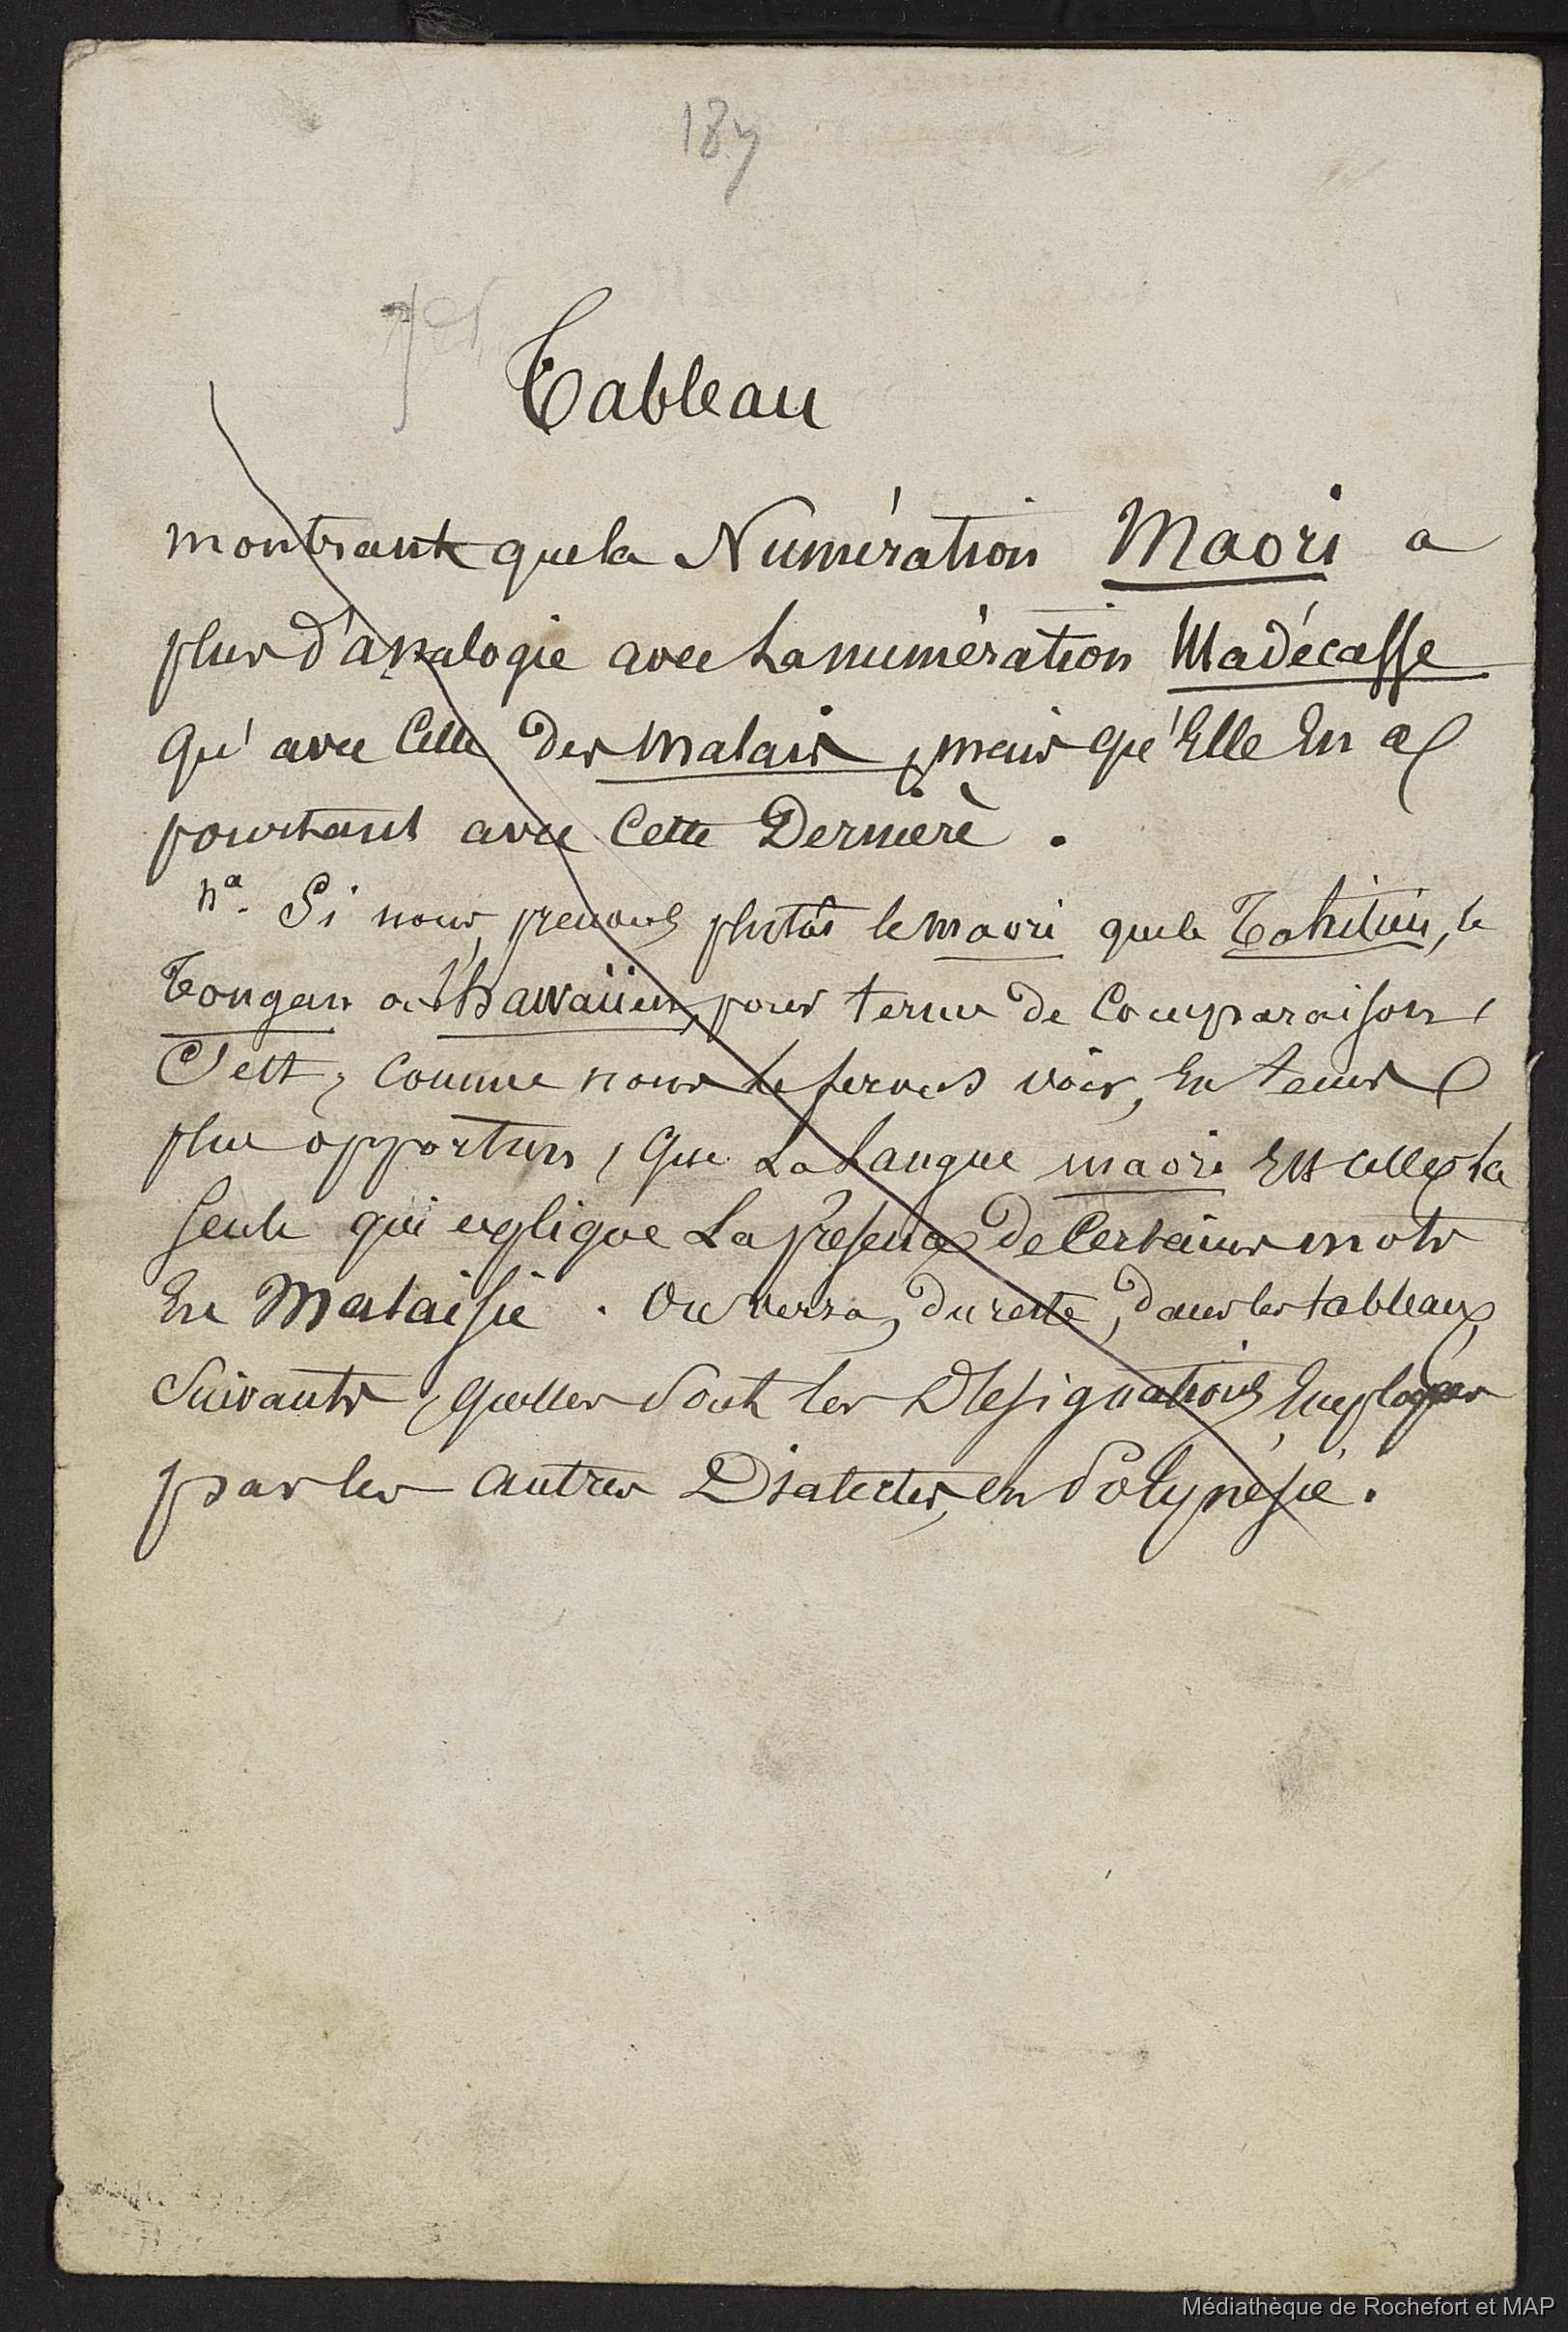 187
Tableau
montrant que la Numération Maori a
plus d'analogie avec La numération Madécasse
qu'avec Celle des Malais, mais qu'Elle En a
pourtant avec Cette Dernière.
na. Si nous prenons plutôt le maori que le Tahitien, le
Tongan ou l'hawaiien, pour terme de Comparaison,
C'est, comme nous le ferons voir, En temps
plus opportun, que La Langue maori Est celle la
seule qui explique La présence de Certains mots
En Malaisie. On verra, du reste, dans les tableaux
Suivants, quelles sont les Désignations Employées
par les autres Dialectes, en Polynésie.
Médiathèque de Rochefort et MAP